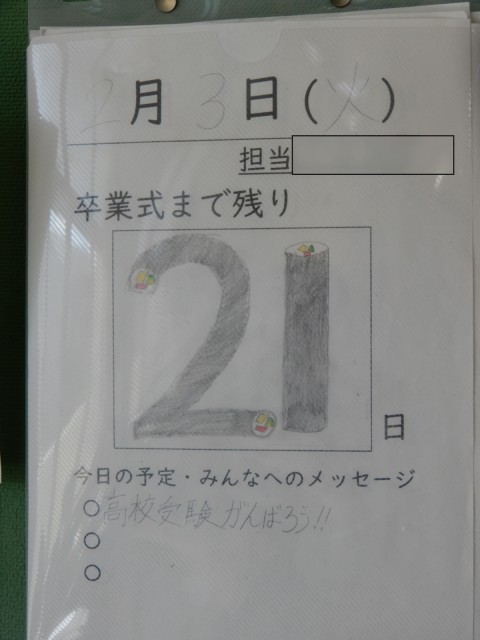 2月3日(火)
担当
卒業式まで残り
21
日
今日の予定・みんなへのメッセージ
○高校受験がんばろう!!
○
○